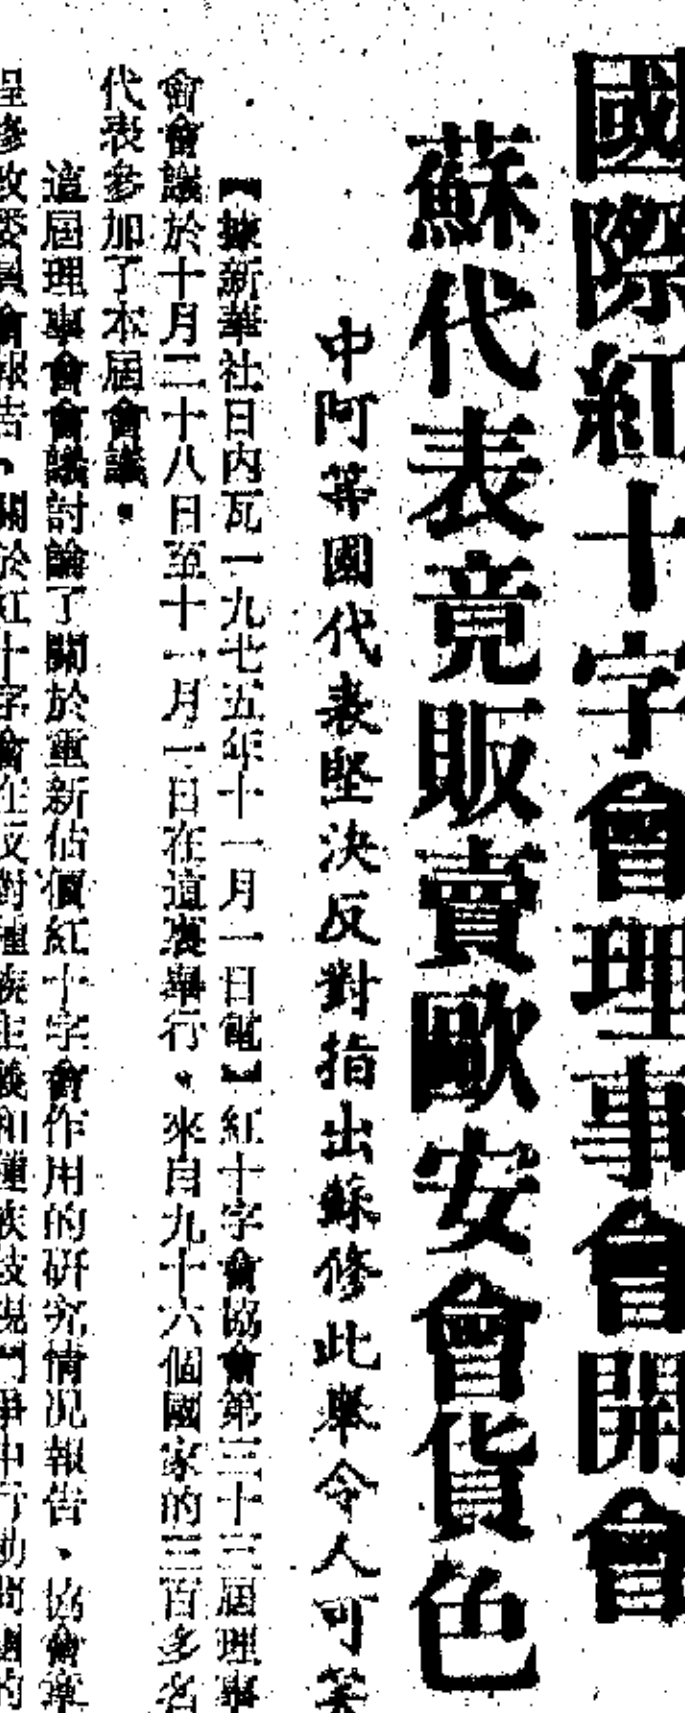 國際紅十字會理事會開會
蘇代表竟販賣歐安會貨色
中阿等國代表堅決反對指出蘇修此舉令人可笑
【據新華社日內瓦一九七五年十一月一日電】紅十字會協會第三十三屆理事
會會議於十月二十八日至十一月一日在這裏舉行。來自九十六個國家的三百多名
代表參加了本屆會議。
這屆理事會會議討論了關於重新估價紅十字會作用的研究情况報告、協會章
程修改委員會報告、關於紅十字會在反對種族主義和種族歧視鬥爭中行動問題的